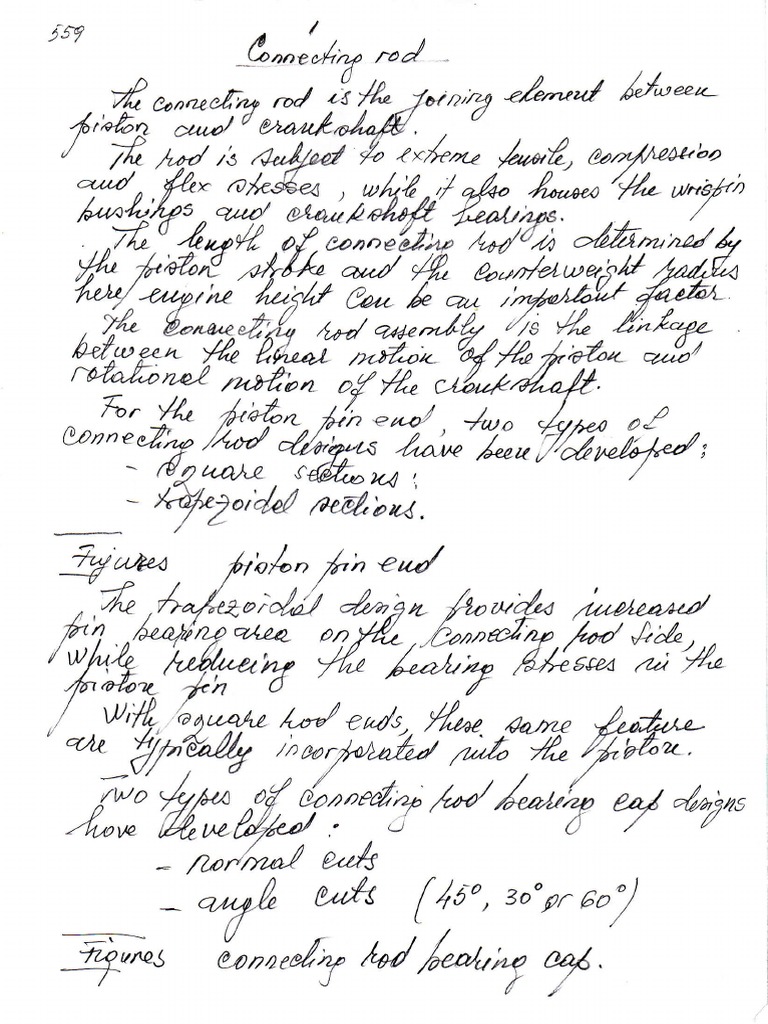 559
Connecting rod
The connecting rod is the joining element between
piston and crankshaft.
The rod is subject to extreme tensile, compression
and flex stresses, while it also houses the wrispin
bushings and crankshaft bearings.
The length of connecting rod is determined by
the piston stroke and the counterweight radius
here, engine height can be an important factor.
The connecting rod assembly is the linkage
between the linear motion of the piston and
rotational motion of the crankshaft.
For the piston pin end, two types of
connecting rod designs have been developed:
- square sections;
- trapezoidal sections.
Figures piston pin end
The trapezoidal design provides increased
pin bearing area on the connecting rod side,
while reducing the bearing stresses in the
piston pin
With square rod ends, these same feature
are typically incorporated into the piston.
Two types of connecting rod bearing cap designs
have developed:
- normal cuts
- angle cuts (45°, 30° or 60°)
Figures connecting rod bearing cap.